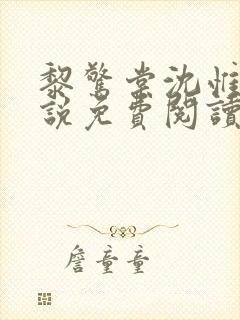 黎驚棠沈惟
說免費閱讀
詹童童